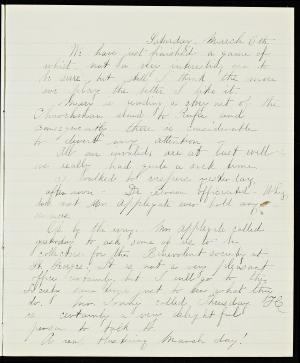 Saturday, March 6th
We have just finished a game of
whist. not a very interesting one to
be sure, but still I think the more
we play the better I like it.
Mary is reading a story out of the
aloud to and
consequently there is considerable
to divert my attention.
All our invalids are at last well
we really had quite a sick time.
I walked to vespers yesterday
afternoon - Dr officiated. Why
does not Mr Applegate ever hold any
service
Oh by the way. Mr Applegate called
yesterday to ask some of us to be
collectors for the Benevolent society at
St. George. It is not a very pleasant
office certainly but I will go to the
meeting just to see what they
do. Mr called Thursday
is certainly a very delightful
person to talk to.
A real blustering March day!